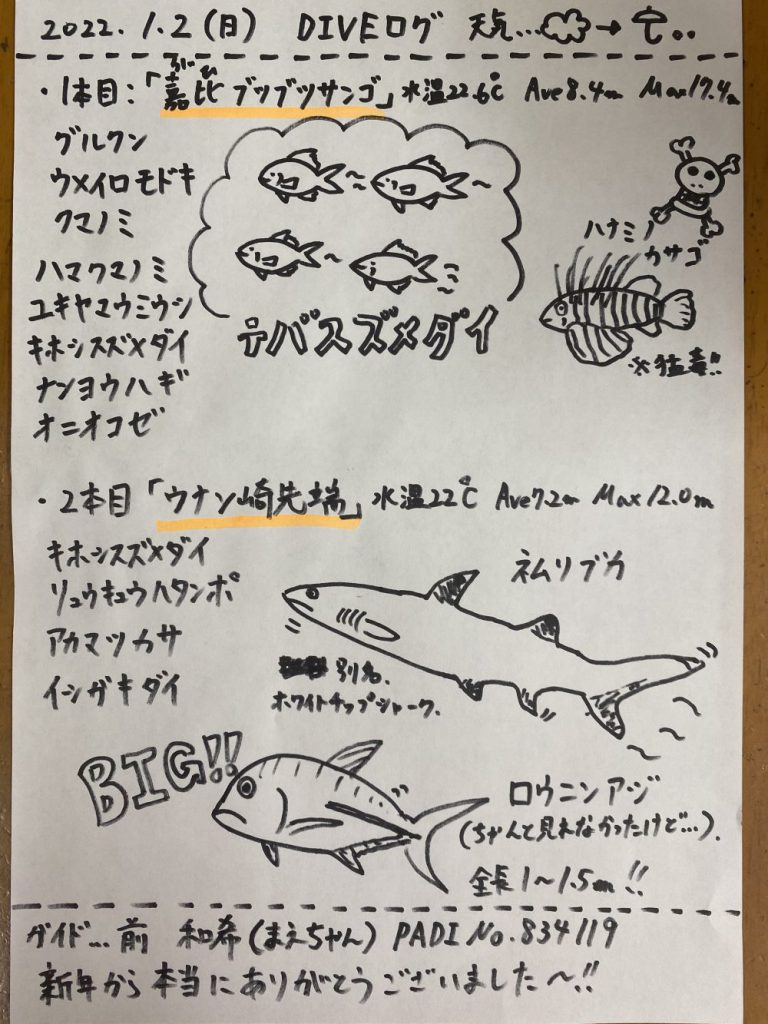 2022.1.2(日) DIVEログ 天気…→
・1本目:「嘉比ブツブツサンゴ」水温22.6℃ Ave8.4m Max17.4m
グルクン
ウメイロモドキ
クマノミ
ハマクマノミ
ユキヤマウミウシ
キホシスズメダイ
ナンヨウハギ
オニオコゼ
テバスズメダイ
ハナミノ
カサゴ
※猛毒!!
・2本目「ウナン崎先端」水温22℃ Ave7.2m Max12.0m
キホシスズメダイ
リュウキュウハタンポ
アカマツカサ
イシガキダイ
ネムリブカ
別名.
ホワイトチップシャーク.
BIG!!
ロウニンアジ
(ちゃんと見れなかったけど…).
全長1〜1.5m!!
ガイド…前 和希(まえちゃん) PADI No.834119
新年から本当にありがとうございました〜!!